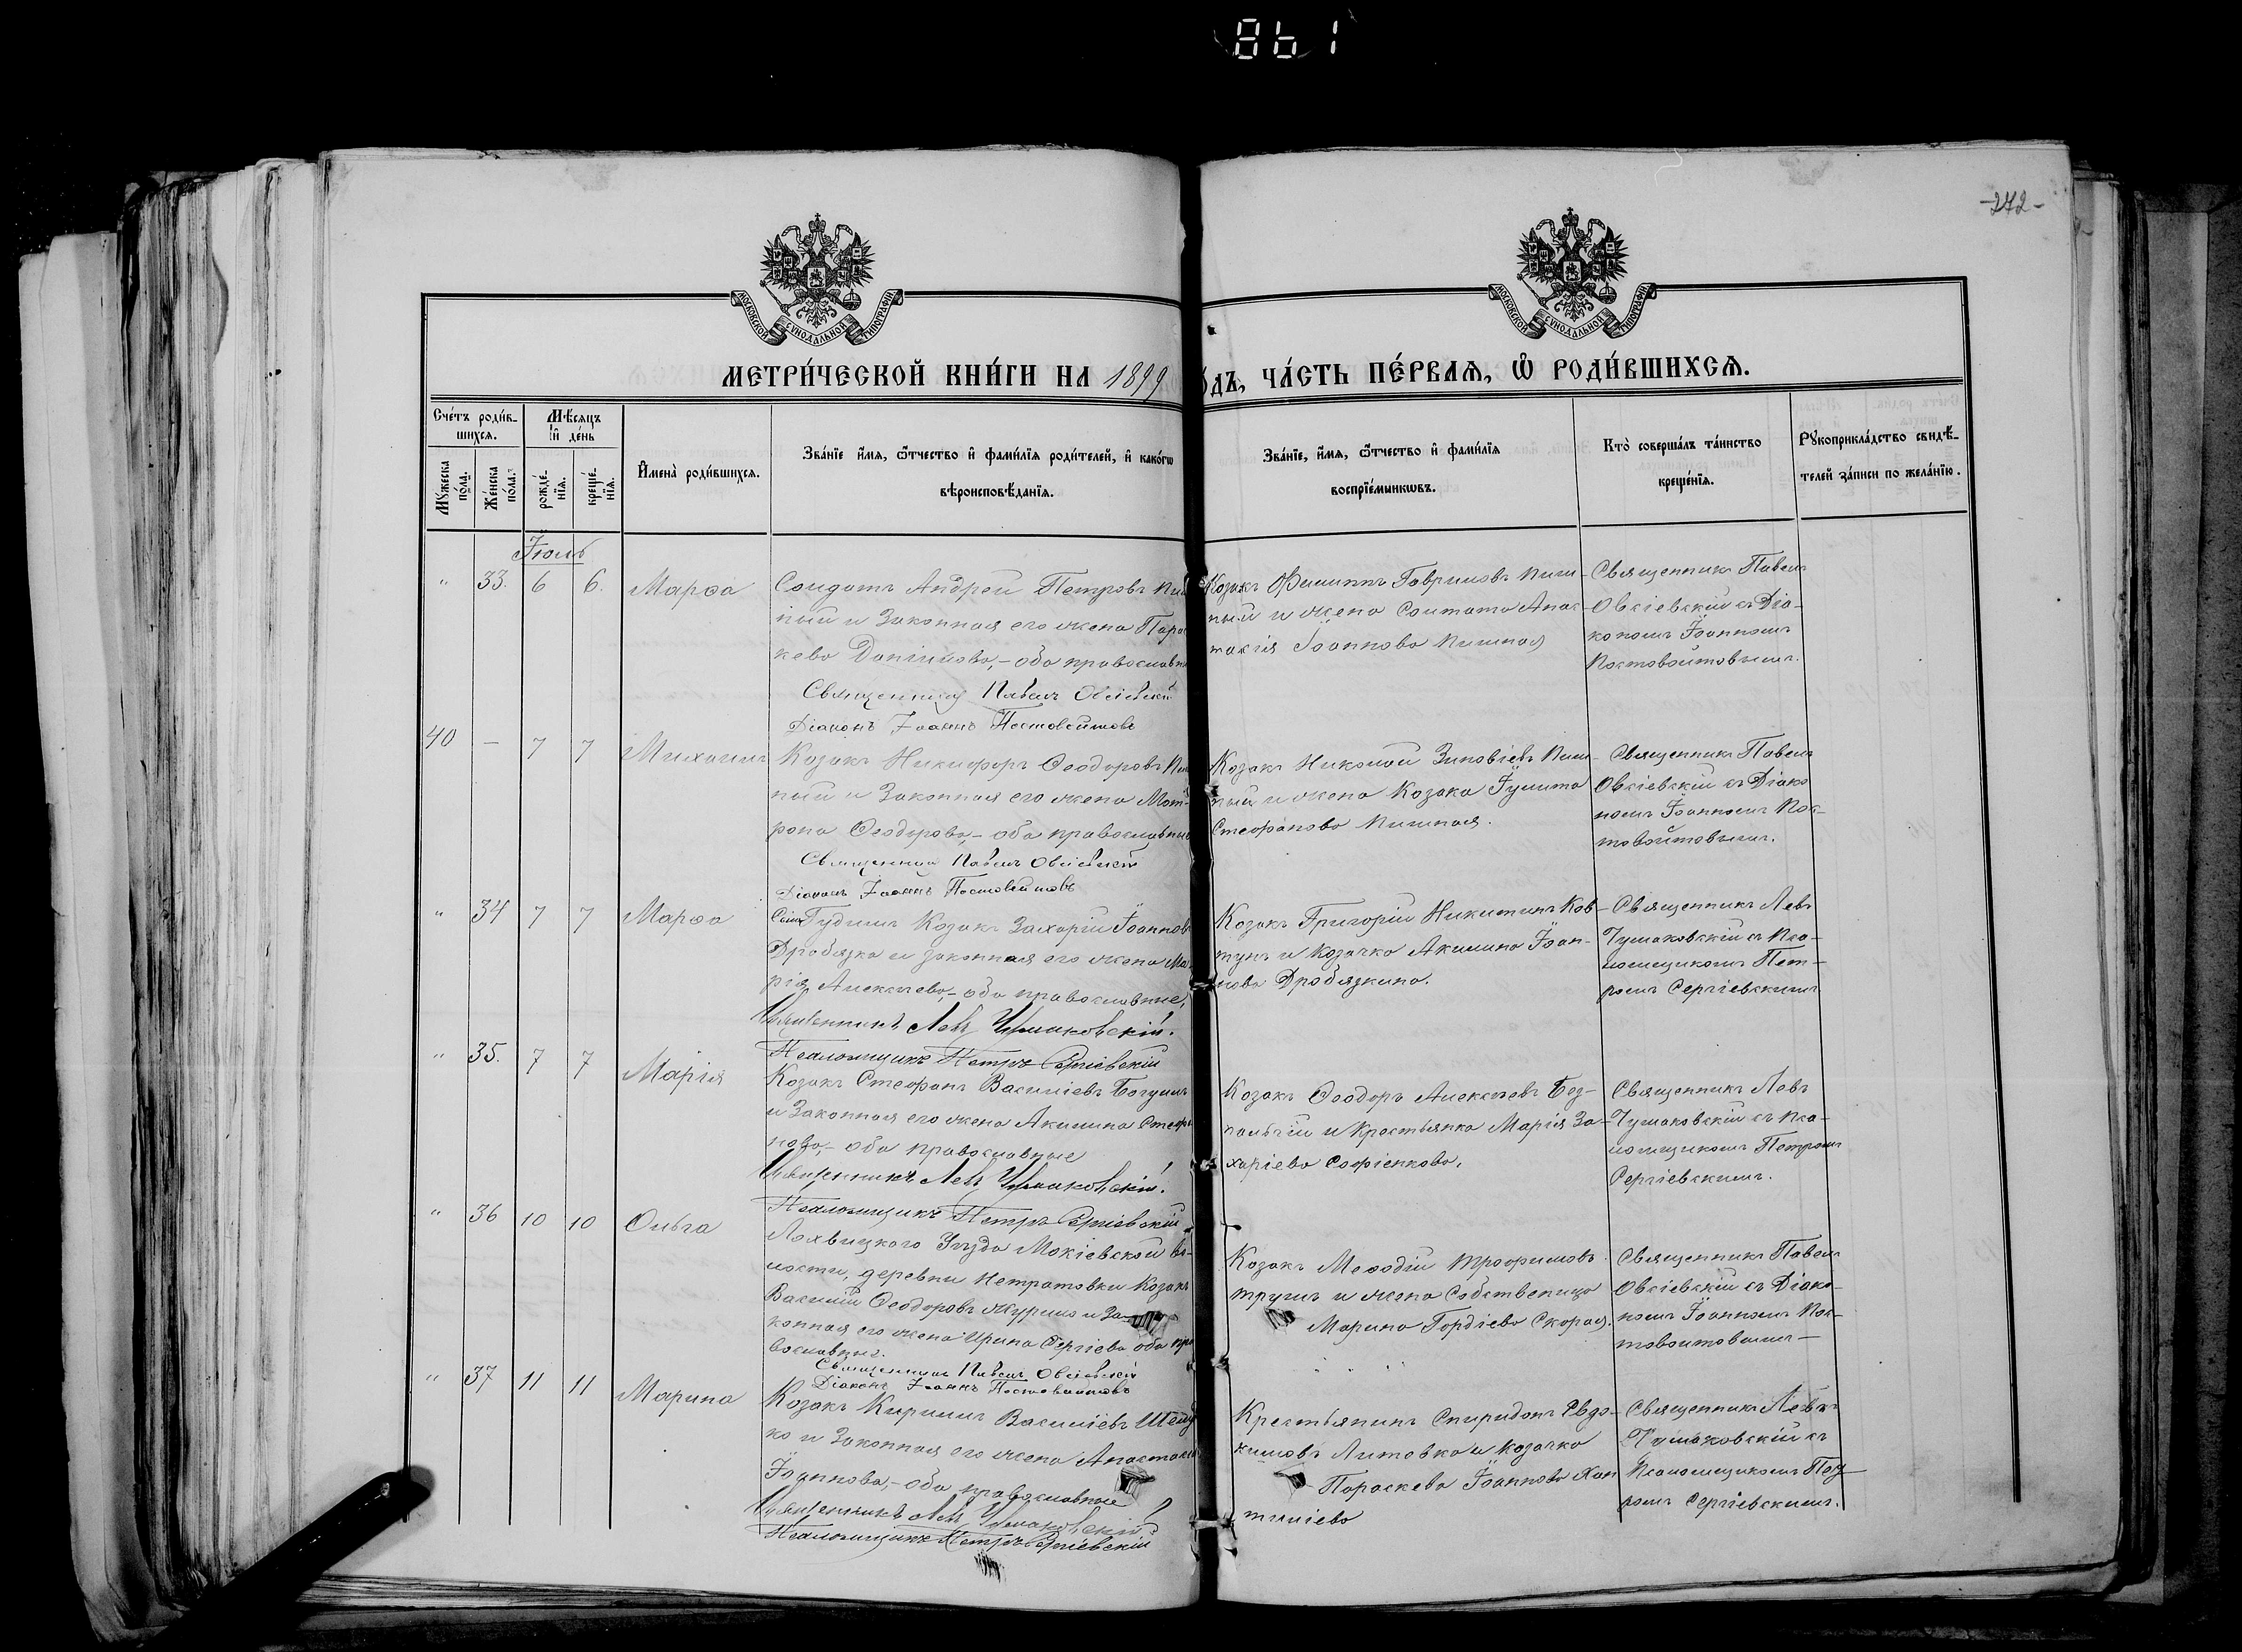 861
-272-
МОСКОВСКОЙ СѴНОДАЛЬНОЙ ТИПОГРАФІИ
МОСКОВСКОЙ СѴНОДАЛЬНОЙ ТИПОГРАФІИ
МЕТРИ́ЧЕСКОЙ КНИ́ГИ НА 1899
О́ДЪ, ЧА́СТЬ ПЕ́РВАѦ, Ѽ РОДИ́ВШИХСѦ.
Сче́тъ роди́в-
шихсѧ.
Мꙋ́жеска по́ла.
Же́нска по́ла.
Мѣ́сяцъ и҆ де́нь
рожде́-нїѧ.
креще́-нїѧ.
И҆мена̀ роди́вшихсѧ.
Зва́нїе и҆́мѧ, ѻ҆́тчество и҆ фами́лїѧ роди́телей, и҆ како́гѡ
вѣроисповѣ́данїѧ.
Зва́нїе, и҆́мѧ, ѻ҆́тчество и҆ фами́лїѧ
воспрїе́мникѡвъ.
Кто̀ соверша́лъ та́инство
креще́нїѧ.
Рꙋкоприкла́дство свидѣ́-
телей за́писи по жела́нїю.
Іюль
" 33. 6 6. Марѳа
Солдатъ Андрей Петровъ
ный и Законная его жена Парас
кева Даніилова,- оба православн
Священникъ Павелъ Овсіевскій
Діаконъ Іоаннъ Постовойтовъ
Козакъ Филиппъ Гавриловъ Пиш-
ный и жена Солтата Анас-
тасія Іоаннова Пишная
Священникъ Павелъ
Овсіевскій съ Діа-
кономъ Іоанномъ
Постовойтовымъ.
40 — 7 7 Михаилъ
Козакъ Никифоръ Ѳеодоровъ Пиш
ный и Законная его жена Мат-
рона Ѳеодорова,- оба православные
Священникъ Павелъ Овсіевскій
Діаконъ Іоаннъ Постовойтовъ
Козакъ Николай Зиновіевъ Пиш-
ный и жена Козака Іулита
Стефанова Пишная.
Священникъ Павелъ
Овсіевскій съ Діако
номъ Іоанномъ Пос-
товойтовымъ.
" 34 7 7 Марѳа
Козакъ Захарій Іоанновъ
Дробязка и законная его жена Ма
рія Алексѣева,- оба православные,
Священникъ Левъ Чумаковскій.
Псаломщикъ Петръ Сергіевскій
Козакъ Григорій Никитинъ Ков-
тунъ и Козачка Акилина Іоан-
нова Дробязкина.
Священникъ Левъ
Чумаковскій съ Пса-
ломщикомъ Пет-
ромъ Сергіевскимъ
" 35. 7 7 Марія
Козакъ Стефанъ Василіевъ
и Законная его жена Акилина Стефа
нова,- оба православные
Священникъ Левъ Чумаковскій.
Псаломщикъ Петръ Сергіевскій
Козакъ Ѳеодоръ Алексѣевъ Без-
пальчій и Крестьянка Марія За-
харіева Софіенкова.
Священникъ Левъ
Чумаковскій съ Пса-
ломщикомъ Петромъ
Сергіевскимъ.
" 36 10 10 Ольга
Лохвицкого Уѣзда Мокіевской во-
лости, деревни Нетратовки Козакъ
Василій Ѳеодоровъ Журило и За-
конная его жена Ирина Сергіева оба пра
вославные.
Священникъ Павелъ Овсіевскій
Діаконъ Іоаннъ Постовойтовъ
Козакъ Меѳодій Трофимовъ
и жена Собственица
Марина Гордіева Скорая.
Священникъ Павелъ
Овсіевскій съ Діако-
номъ Іоанномъ Пос-
товойтовымъ—
" 37 11 11 Марина
Козакъ Кириллъ Василіевъ
ко и Законная его жена Анастасія
Іоаннова,- оба православные
Священникъ Левъ Чумаковскій
Псаломщикъ Петръ Сергіевскій
Крестьянинъ Спиридонъ Евдо-
кимовъ Литовка и Козачка
Параскева Іоаннова Хан
тиліева
Священникъ Левъ
Чумаковскій съ
Псаломщикомъ Пет
ромъ Сергіевскимъ.